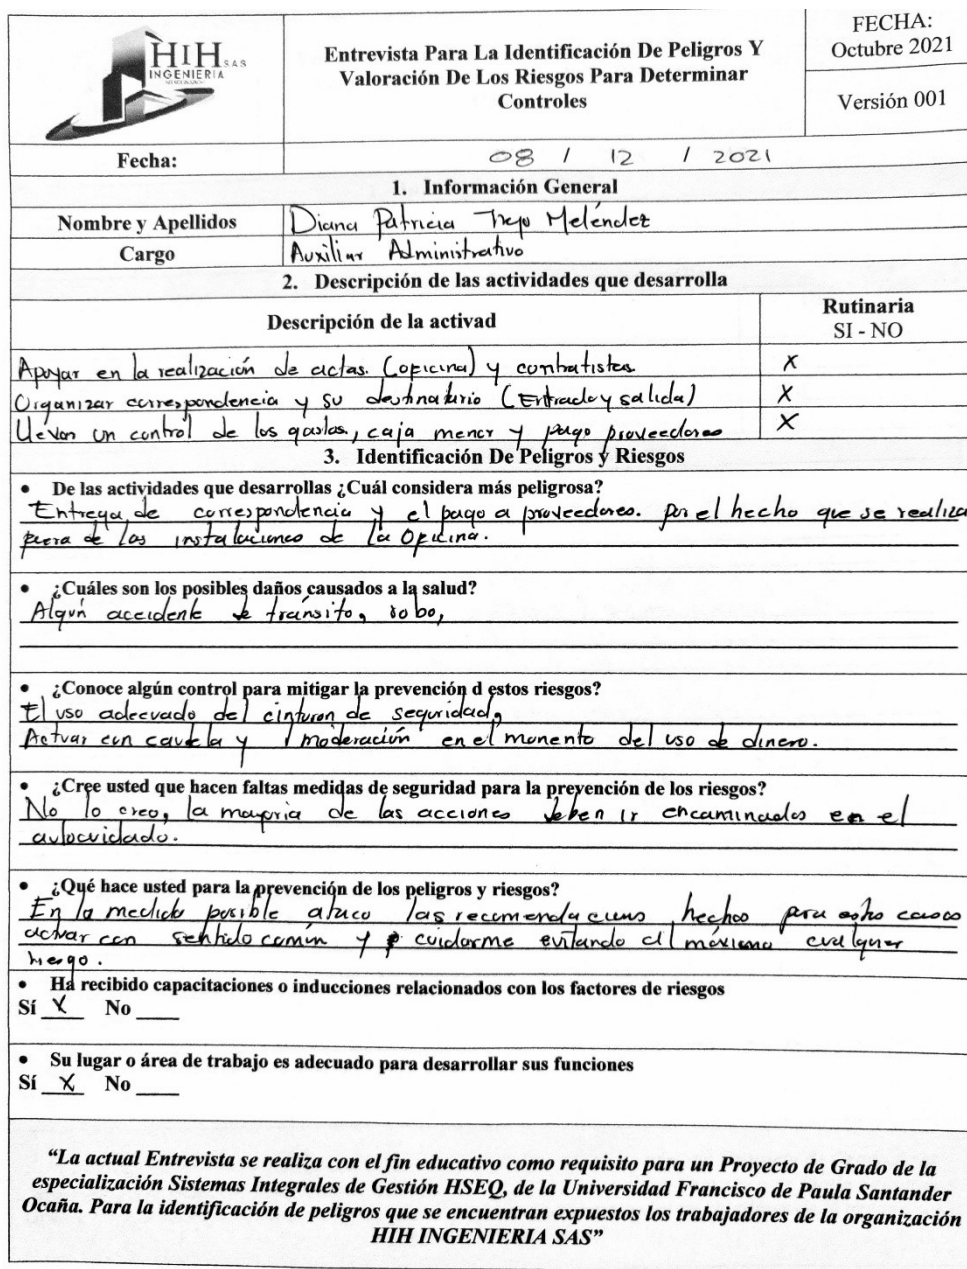 HIH S.A.S
INGENIERIA
Entrevista Para La Identificación De Peligros Y
Valoración De Los Riesgos Para Determinar
Controles
FECHA:
Octubre 2021
Versión 001
Fecha: 08 / 12 / 2021
1. Información General
Nombre y Apellidos Diana Patricia Trejo Meléndez
Cargo Auxiliar Administrativo
2. Descripción de las actividades que desarrolla
Descripción de la activad
Rutinaria
SI - NO
Apoyar en la realización de actas. (oficina) y contratistas X
Organizar correspondencia y su destinatario (Entrada y salida) X
Llevar un control de los gastos, caja menor y pago proveedores X
3. Identificación De Peligros y Riesgos
• De las actividades que desarrollas ¿Cuál considera más peligrosa?
Entrega de correspondencia y el pago a proveedores. Por el hecho que se realiza
fuera de las instalaciones de la Oficina.
• ¿Cuáles son los posibles daños causados a la salud?
Algún accidente de tránsito, robo,
• ¿Conoce algún control para mitigar la prevención d estos riesgos?
El uso adecuado del cinturon de seguridad,
Actuar con cautela y moderación en el momento del uso de dinero.
• ¿Cree usted que hacen faltas medidas de seguridad para la prevención de los riesgos?
No lo creo, la mayoria de las acciones deben ir encaminadas en el
autocuidado.
• ¿Qué hace usted para la prevención de los peligros y riesgos?
En la medida posible las recomendaciones hechas para casos
actuar con sentido común y cuidarme evitando al máximo cualquier
riesgo.
• Ha recibido capacitaciones o inducciones relacionados con los factores de riesgos
Sí X No ____
• Su lugar o área de trabajo es adecuado para desarrollar sus funciones
Sí X No ____
“La actual Entrevista se realiza con el fin educativo como requisito para un Proyecto de Grado de la
especialización Sistemas Integrales de Gestión HSEQ, de la Universidad Francisco de Paula Santander
Ocaña. Para la identificación de peligros que se encuentran expuestos los trabajadores de la organización
HIH INGENIERIA SAS”